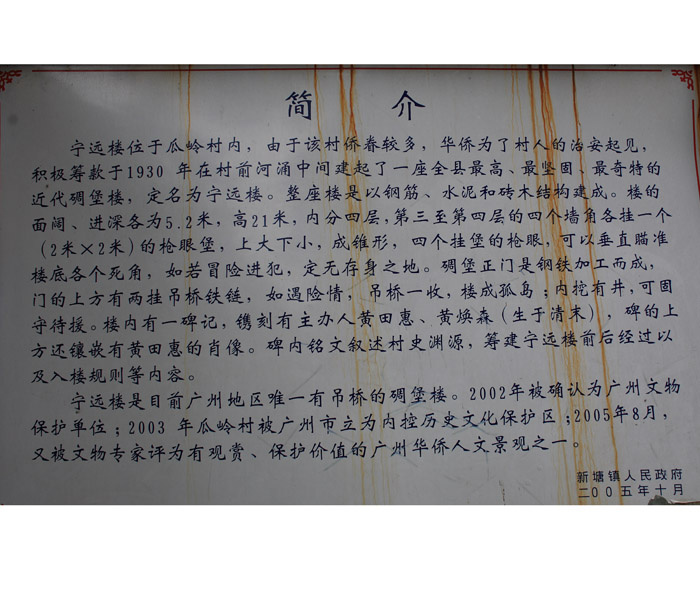 简 介
宁远楼位于瓜岭村内，由于该村侨眷较多，华侨为了村人的治安起见，
积极筹款于1930 年在村前河涌中间建起了一座全县最高、最坚固、最奇特的
近代碉堡楼，定名为宁远楼。整座楼是以钢筋、水泥和砖木结构建成。楼的
面阔、进深各为5.2米，高21米，内分四层，第三至第四层的四个墙角各挂一个
（2米×2米）的枪眼堡，上大下小，成锥形，四个挂堡的枪眼，可以垂直瞄准
楼底各个死角，如若冒险进犯，定无存身之地。碉堡正门是钢铁加工而成，
门的上方有两挂吊桥铁链，如遇险情，吊桥一收，楼成孤岛；内挖有井，可固
守待援。楼内有一碑记，镌刻有主办人黄田惠、黄焕森（生于清末），碑的上
方还镶嵌有黄田惠的肖像。碑内铭文叙述村史渊源，筹建宁远楼前后经过以
及入楼规则等内容。
宁远楼是目前广州地区唯一有吊桥的碉堡楼。2002年被确认为广州文物
保护单位；2003 年瓜岭村被广州市立为内控历史文化保护区；2005年8月，
又被文物专家评为有观赏、保护价值的广州华侨人文景观之一。
新塘镇人民政府
二〇〇五年十月